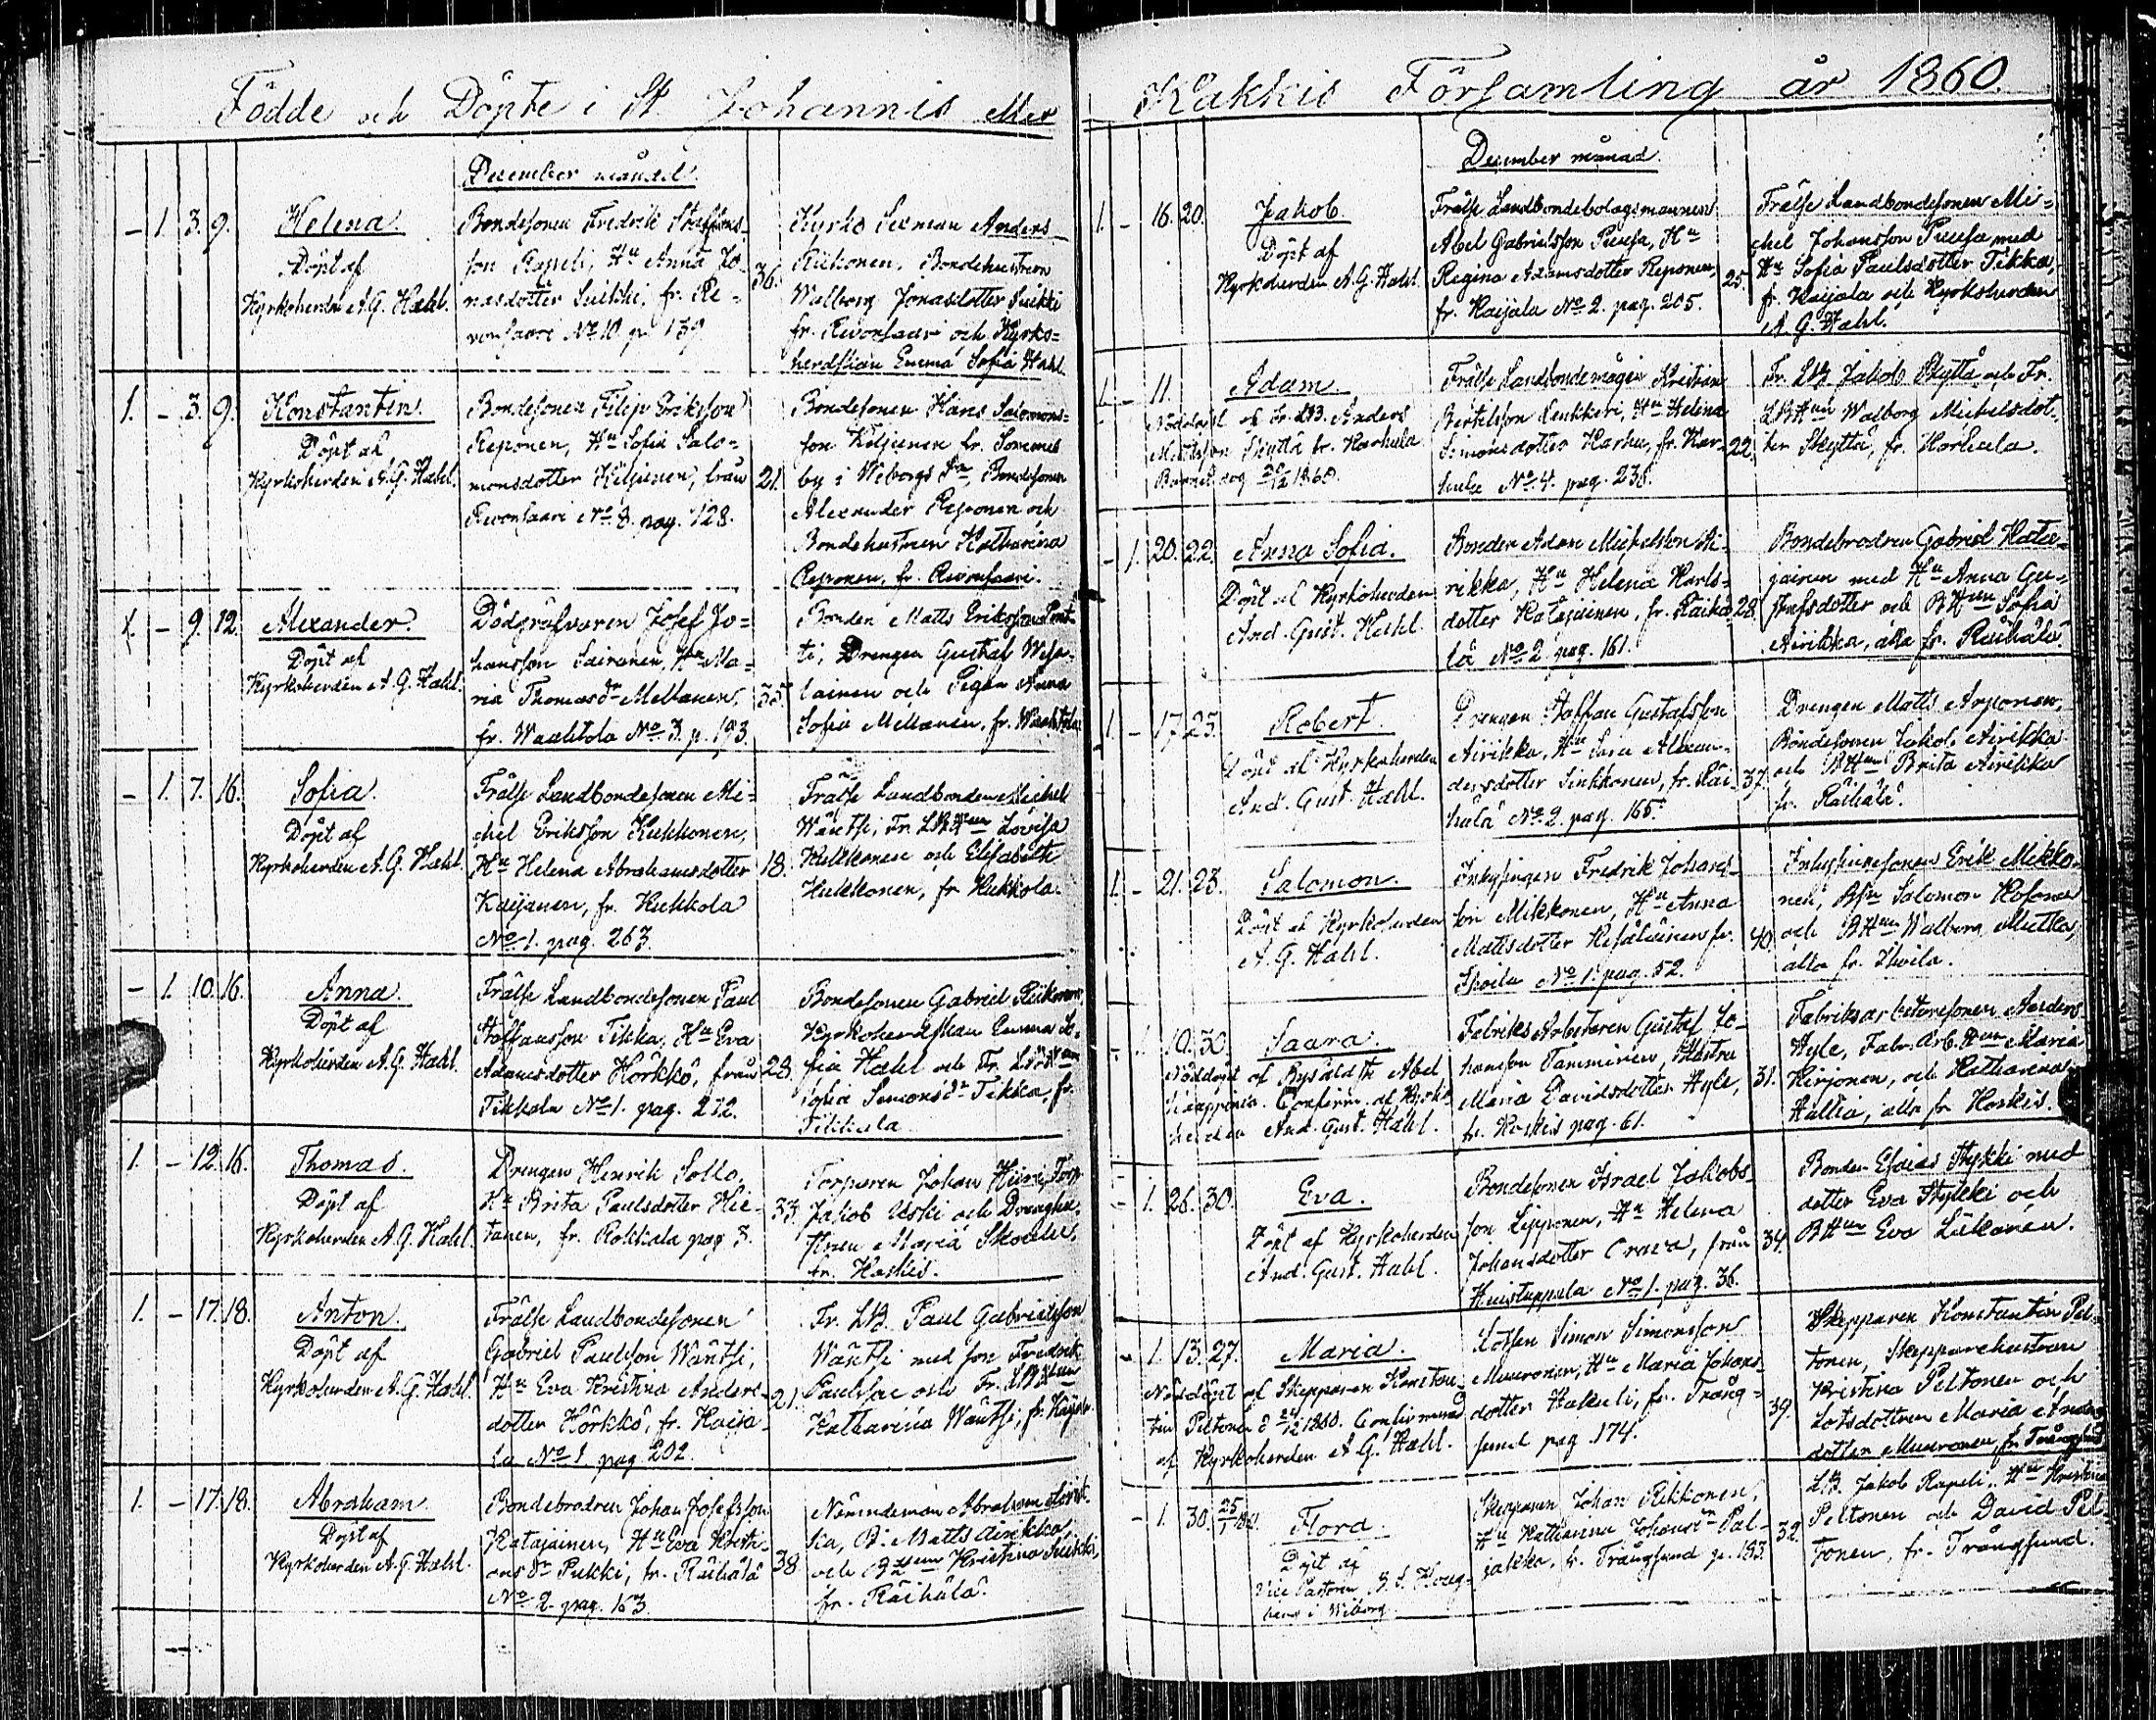 Födde och Döpte i St. Johannis eller
December månad.
- 1. 3. 9. Helena.
Döpt af
Kyrkoherden A.G. Hahl.
Bondesonen Fredrik Staffans-
son Rapeli, Hu Anna Jo-
nasdotter Suikki, fr. Re-
vonsaari No 10. p. 139.
36.
Kyrko Sexman Anders
Riikonen, Bondehustrun
Walborg Jonasdotter Suikki
fr. Revonsaari och Kyrko-
herdskan Emma Sofia Hahl.
1. - 3. 9. Konstantin.
Döpt af
Kyrkoherden A.G. Hahl.
Bondesonen Filip Eriksson
Reponen, Hu Sofia Salo-
monsdotter Kiljunen, från
Revonsaari No 8. pag. 128.
21.
Bondesonen Hans Salomons-
son Kiljunen fr. Sommee
by i Wiborgs Sn, Bondesonen
Alexander Reponen och
Bondehustrun Katharina
Reponen, fr. Revonsaari.
1. - 9. 12. Alexander.
Döpt af
Kyrkoherden A.G. Hahl.
Dödgräfvaren Josef Jo-
hansson Sairanen, Hu Ma-
ria Thomasdr Mellanen,
fr. Waahtola No 3. p. 193.
35.
Bonden Matts Eriksson Pent-
ti, Drengen Gustaf Wesa-
lainen och Pigan Anna
Sofia Mellanen, fr. Waahtola
- 1. 7. 16. Sofia.
Döpt af
Kyrkoherden A.G. Hahl.
Frälse Landbondesonen Mi-
chel Eriksson Kukkonen,
Hu Helena Abrahamsdotter
Kaijanen, fr. Kukkola
No 1. pag. 263.
18.
Frälse Landbonden Michel
Wäntsi, Fr. LBHun Lovisa
Kukkonen och Elisabeth
Kukkonen, fr Kukkola.
- 1. 10. 16. Anna.
Döpt af
Kyrkoherden A.G. Hahl.
Frälse Landbondesonen Paul
Staffansson Tikka, Hu Eva
Adamsdotter Hörkkö, från
Tikkala No 1. pag. 272.
28.
Bondesonen Gabriel Riikonen,
Kyrkoherdskan Emma So-
fia Hahl och Fr. LBHun
Sofia Simonsdr Tikka, fr.
Tikkala
1. - 12. 16. Thomas.
Döpt af
Kyrkoherden A.G. Hahl.
Drengen Henrik Sollo,
Hu Brita Paulsdotter Hie-
tanen, fr. Rokkala pag 3.
33.
Torparen Johan Torp.
Jakob Uski och Drenghu-
strun Maria
fr. Rokkis.
1. - 17. 18. Anton.
Döpt af
Kyrkoherden A.G. Hahl.
Frälse Landbondesonen
Gabriel Paulsson Wäntsi,
Hu Eva Kristina Anders-
dotter Hörkkö, fr. Kaija-
la No 1. pag. 202.
21.
Fr. LB. Paul Gabrielsson
Wäntsi med son Fredrik
Paulsson och Fr. LBHun
Katharina Wäntsi, fr. Kaijala.
1. - 17. 18. Abraham
Döpt af
Kyrkoherden A.G. Hahl.
Bondebrodren Johan Josefsson
Katajainen, Hu Eva Kristi-
ansdr Pukki, fr. Räihälä
No 2. pag. 163.
38.
Nämndeman Abraham Airik-
ka, B. Matts Airikka,
och BHun Kristina Suikki,
fr. Räihälä.
Kakkis Församling år 1860.
December månad.
1. - 16. 20. Jakob.
Döpt af
Kyrkoherden A.G. Hahl.
Frälse Landbondebolagsmannen
Abel Gabrielsson Puusa, Hu
Regina Adamsdotter Reponen,
fr. Kaijala No 2. pag. 205.
25.
Frälse Landbondesonen Mi-
chel Johansson Puusa med
Hu Sofia Paulsdotter Tikka,
fr. Kaijala och Kyrkoherden
A. G. Hahl.
1. - 11. Adam.
Nöddöpt af Fr. LB. Anders
Mattsson Skyttä fr. Karhula
Barnet dog 20/12 1860.
Frälse Landbondemågen Kristian
Bertilsson Leukkeri, Hu Helena
Simonsdotter Harhu, fr. Kar-
hula No 4. pag. 238.
22.
Fr. LB. Jakob Skyttä och Fr.
LBHun Walborg Michelsdot-
ter Skyttä, fr. Karhula.
- 1. 20. 22. Anna Sofia.
Döpt af Kyrkoherden
And. Gust. Hahl.
Bonden Adam Michelsson Ai-
rikka, Hu Helena Karls-
dotter Katajainen, fr. Räihä-
lä No 2. pag. 161.
28.
Bondebrodren Gabriel Kata-
jainen med Hu Anna Gu-
stafsdotter och BHun Sofia
Airikka, alla fr. Räihälä.
1. - 17. 25. Robert.
Döpt af Kyrkoherden
And. Gust. Hahl.
Drengen Staffan Gustafsson
Airikka, Hu Lisa Alexan-
dersdotter Sinkkonen, fr. Räi-
hälä No 2. pag. 165.
37.
Drengen Matts Arponen,
Bondesonen Jakob Airikka
och BHun Brita Airikka
fr. Räihälä.
1. - 21. 23. Salomon.
Döpt af Kyrkoherden
A. G. Hahl.
Inhysingen Fredrik Johans-
son Mikkonen, Hu Anna
Mattsdotter Kesäläinen fr.
No 1. pag. 52.
40.
Inhysingesonen Erik Mikko-
nen, Bsn Salomon Kosonen
och BHun Walborg Mutka,
alla fr.
- 1. 10. 30. Saara.
Nöddöpt af Byålderm Abel
Kaapponen. Confirm. af Kyrko-
herden And. Gust. Hahl.
Fabriks Arbetaren Gustaf Jo-
hansson Tamminen, Hustru
Maria Davidsdotter Hyle,
fr. Rokkis pag. 61.
31.
Fabriksarbetaresonen Anders
Hyle, Fabr. Arb. Hun Maria
Kirjonen, och Katharina
Hallia, alla fr Rokkis.
- 1. 26. 30. Eva.
Döpt af Kyrkoherden
And. Gust. Hahl.
Bondesonen Israel Jakobs-
son Lipponen, Hu Helena
Johansdotter Orava, från
No 1. pag. 36.
34.
Bonden Esaias Stykki med
dotter Eva Stykki och
BHun Eva Liikanen.
- 1. 13. 27. Maria.
Nöddöpt af Skepparen Konstan-
tin Peltonen d 21/12 1860. Confirmerad
af Kyrkoherden A. G. Hahl.
Lotsen Simon Simonsson
Muuronen, Hu Maria Johans-
dotter Hakuli, fr. Trång-
sund pag. 174.
39.
Skepparen Konstantin Pel-
tonen, Skepparehustrun
Kristina Peltonen och
Lotsdottren Maria Anders-
dotter Muuronen, fr. Trångsund
- 1. 30. 25/1 1861. Flora.
Döpt af
Vice Pastorn
i Wiborg.
Skepparen Johan Riikkonen,
Hu Katharina Johansdr Pal-
jakka, fr. Trångsund p. 183.
32.
LB. Jakob Rapeli, Hu Kristina
Peltonen och David Pel-
tonen, fr. Trångsund.